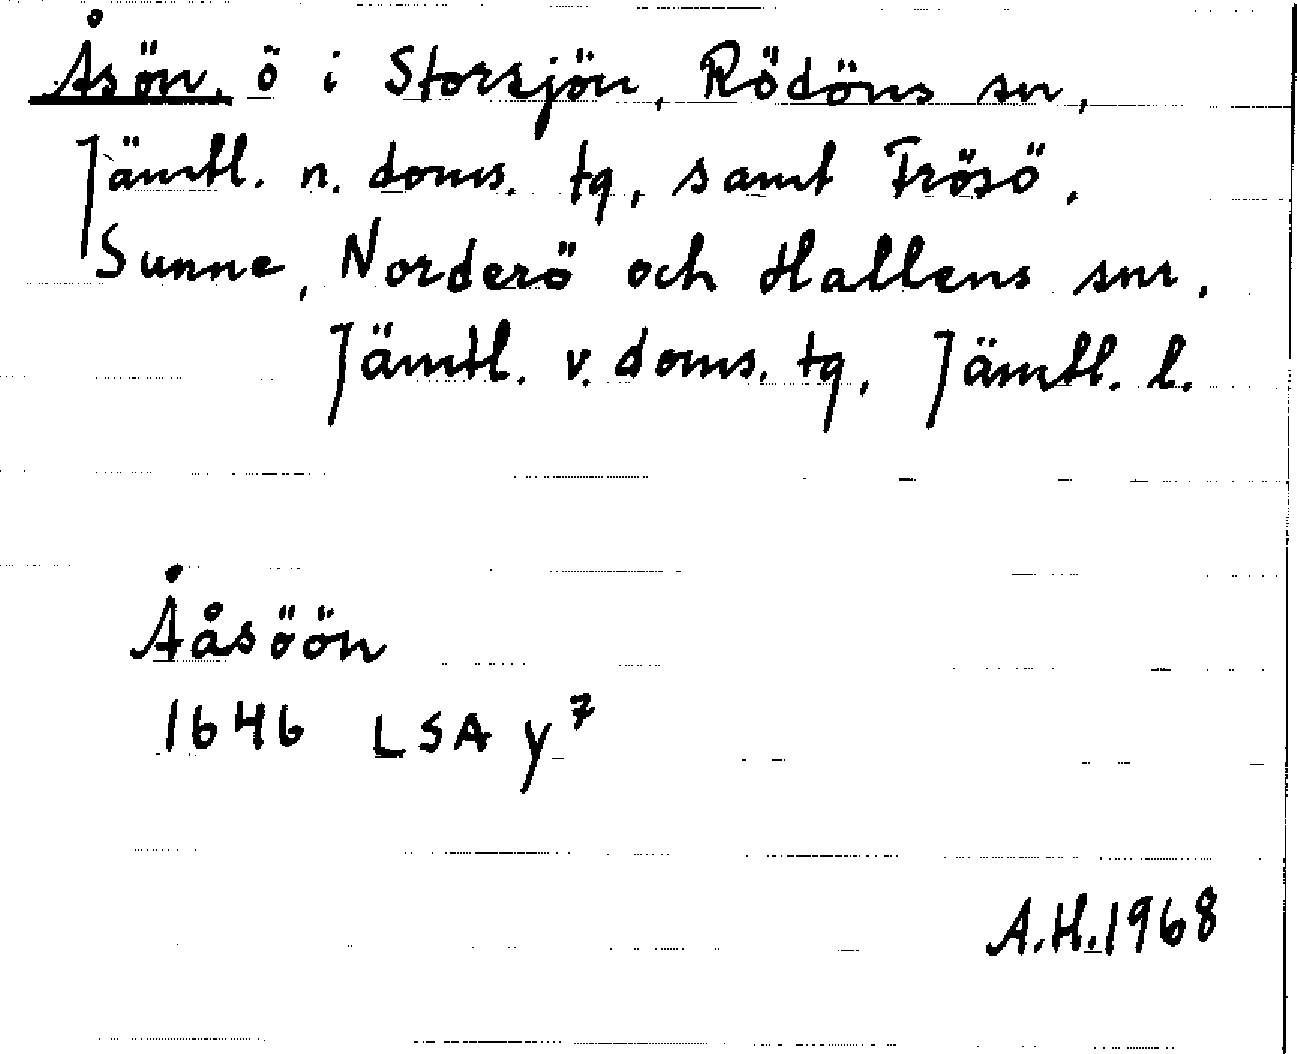 Åsön, ö i Storsjön, Rödöns sn,
Jämtl. n. doms. tg, samt Frösö,
Sunne, Norderö och Hallens snr,
Jämtl. v. doms. tg, Jämtl. l.
Ååsöön
1646 LSA y⁷
A.H.1968